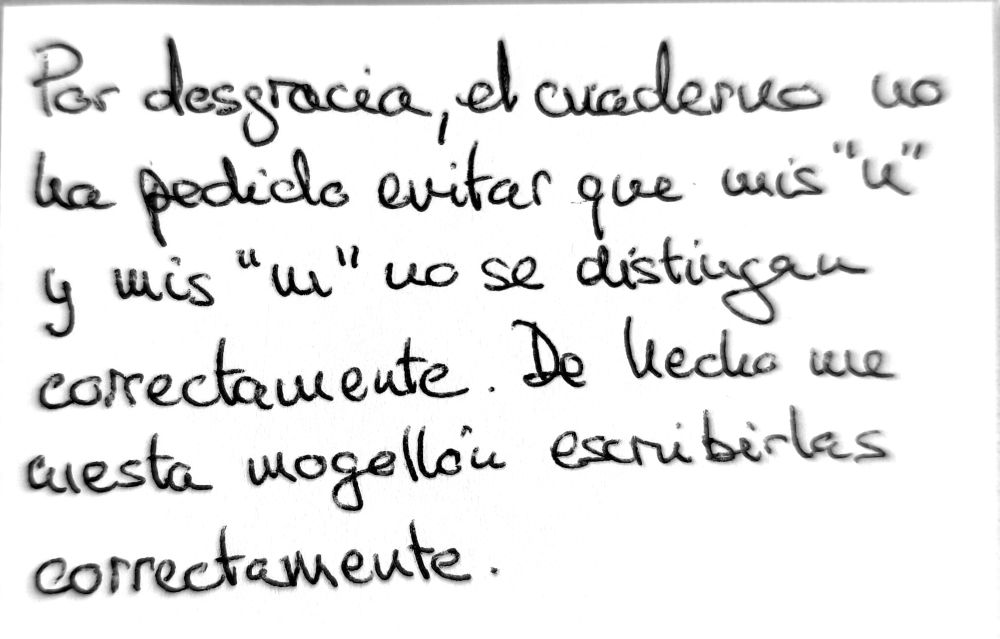 Por desgracia, el cuaderno no
ha pedido evitar que mis "n"
y mis "m" no se distingan
correctamente. De hecho me
cuesta mogellón escribirlas
correctamente.